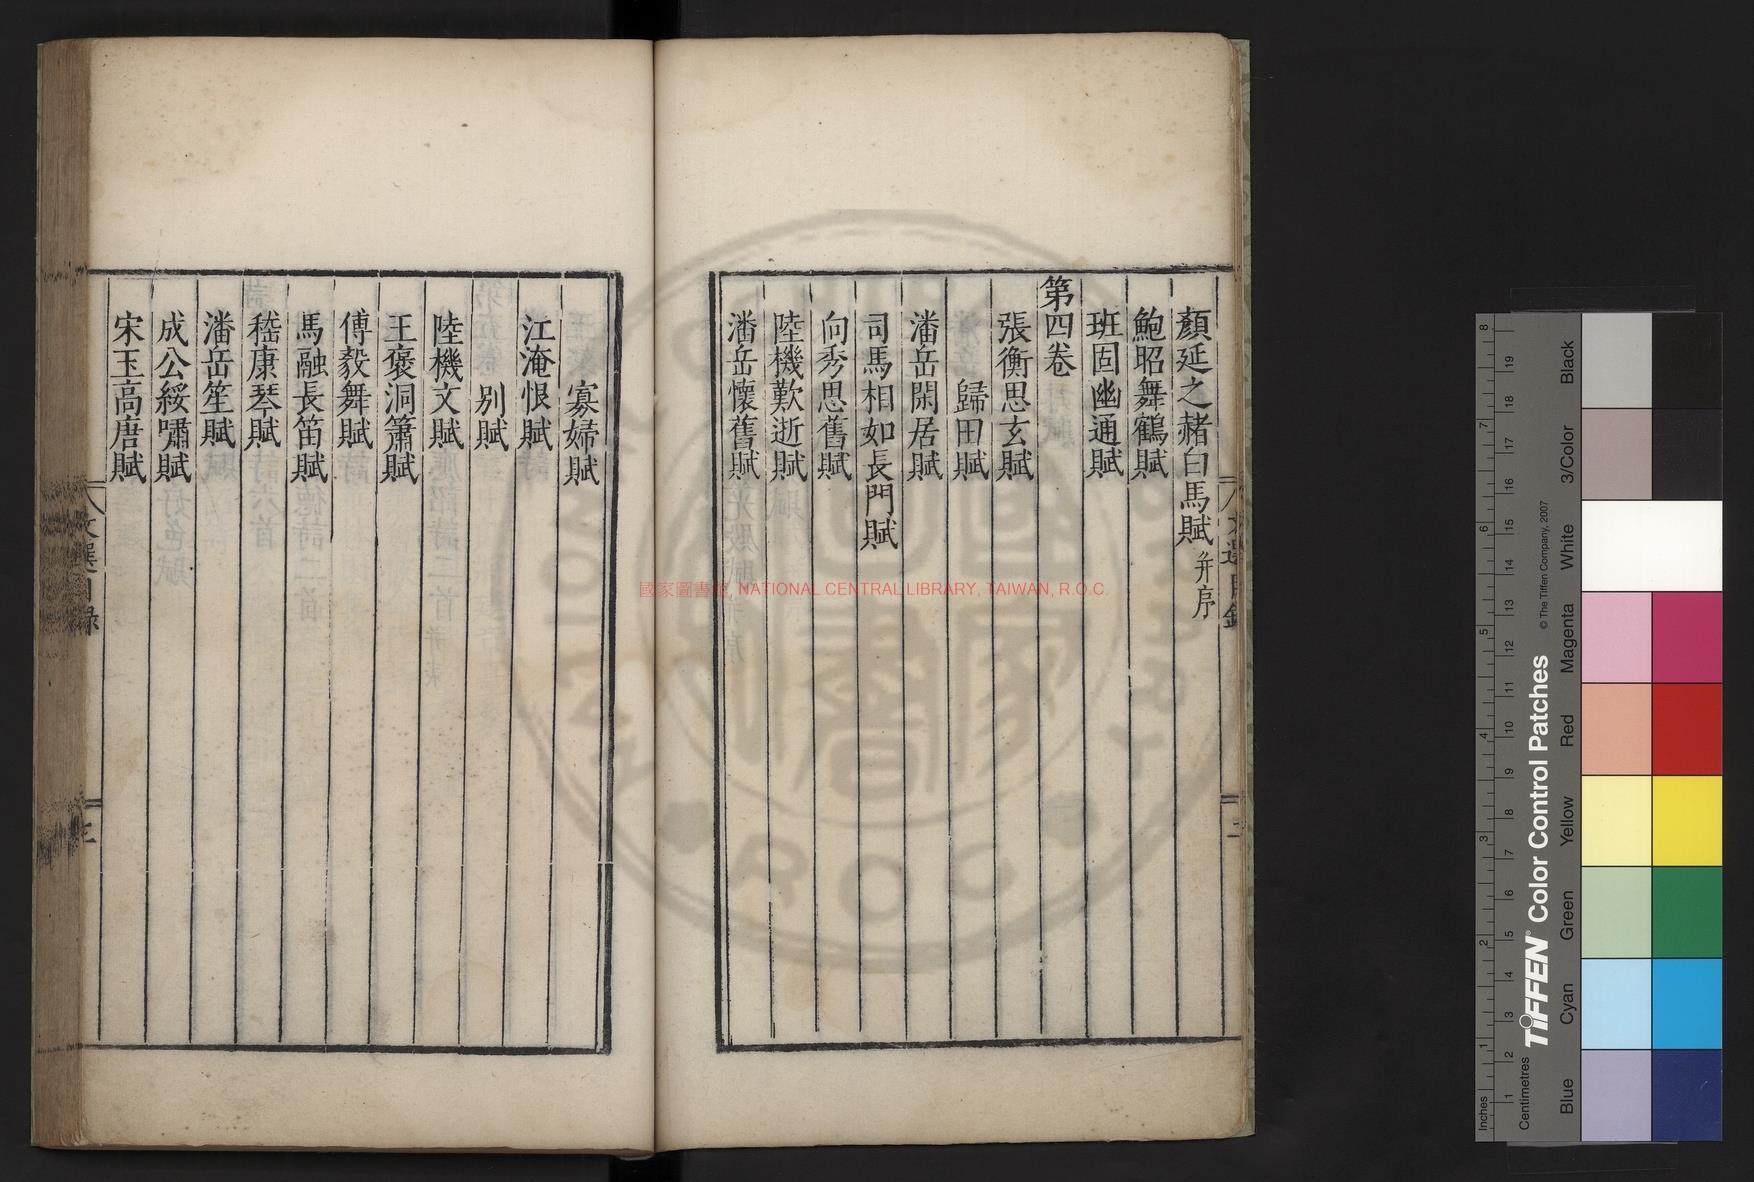 顏延之赭白馬賦并序
鮑昭舞鶴賦
班固幽通賦
第四卷
張衡思玄賦
歸田賦
潘岳閑居賦
司馬相如長門賦
向秀思舊賦
陸機歎逝賦
潘岳懷舊賦
寡婦賦
江淹恨賦
別賦
陸機文賦
王褒洞簫賦
傅毅舞賦
馬融長笛賦
嵇康琴賦
潘岳笙賦
成公綏嘯賦
宋玉高唐賦
文選目錄
三
文選目錄
二
國家圖書館, NATIONAL CENTRAL LIBRARY, TAIWAN, R.O.C.
R.O.C.
Inches
Centimetres
TIFFEN® Color Control Patches
© The Tiffen Company, 2007
Blue
Cyan
Green
Yellow
Red
Magenta
White
3/Color
Black
1 2 3 4 5 6 7 8
1 2 3 4 5 6 7 8 9 10 11 12 13 14 15 16 17 18 19